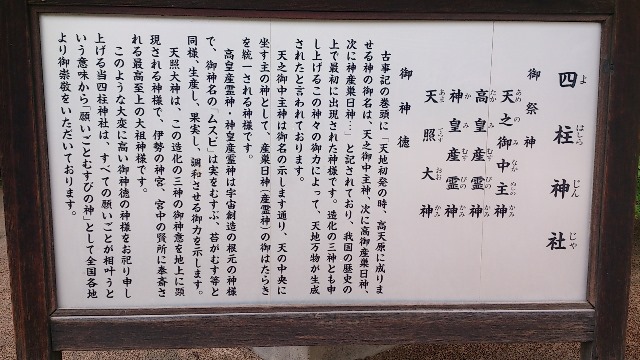 四柱神社
よ はしら じん じゃ
御祭神
天之御中主神
あめ の み なか ぬし かみ
高皇産霊神
たか み むす びの かみ
神皇産霊神
か み むす びの かみ
天照大神
あま てらす おお かみ
御神徳
古事記の巻頭に「天地初発の時、高天原に成りま
せる神の御名は、天之御中主神、次に高御産巣日神、
次に神産巣日神…」と記されており、我国の歴史の
上で最初に出現された神様です。造化の三神とも申
し上げるこの神々の御力によって、天地万物が生成
されたと言われております。
天之御中主神は御名の示します通り、天の中央に
坐す主の神として、産巣日神(産霊神)の御はたらき
を統一される神様です。
高皇産霊神・神皇産霊神は宇宙創造の根元の神様
で、御神名の「ムスビ」は実をむすぶ、苔がむす等と
同様、生産し、果実し、調和させる御力を示します。
天照大神は、この造化の三神の御神意を地上に顕
現される神様で、伊勢の神宮、宮中の賢所に奉斎さ
れる最高至上の大祖神様です。
このような大変に高い御神徳の神様をお祀り申し
上げる当四柱神社は、すべての願いごとが相叶うと
いう意味から「願いごとむすびの神」として全国各地
より御崇敬をいただいております。